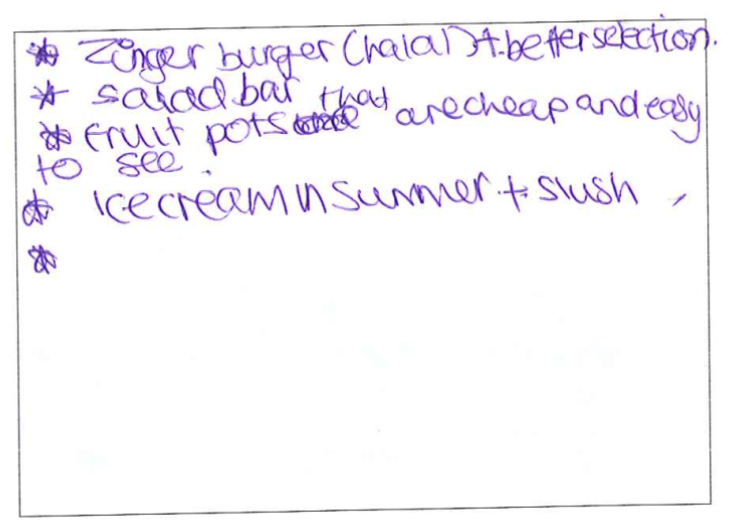 * Zinger burger (halal) + better selection.
* salad bar
* fruit pots that are cheap and easy
to see.
* Ice cream in summer + slush
*